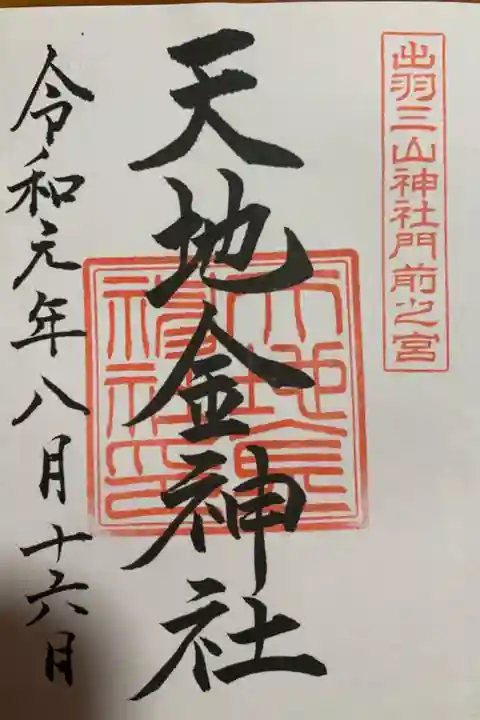 出羽三山神社門前之宮
天地金神社
令和元年八月十六日